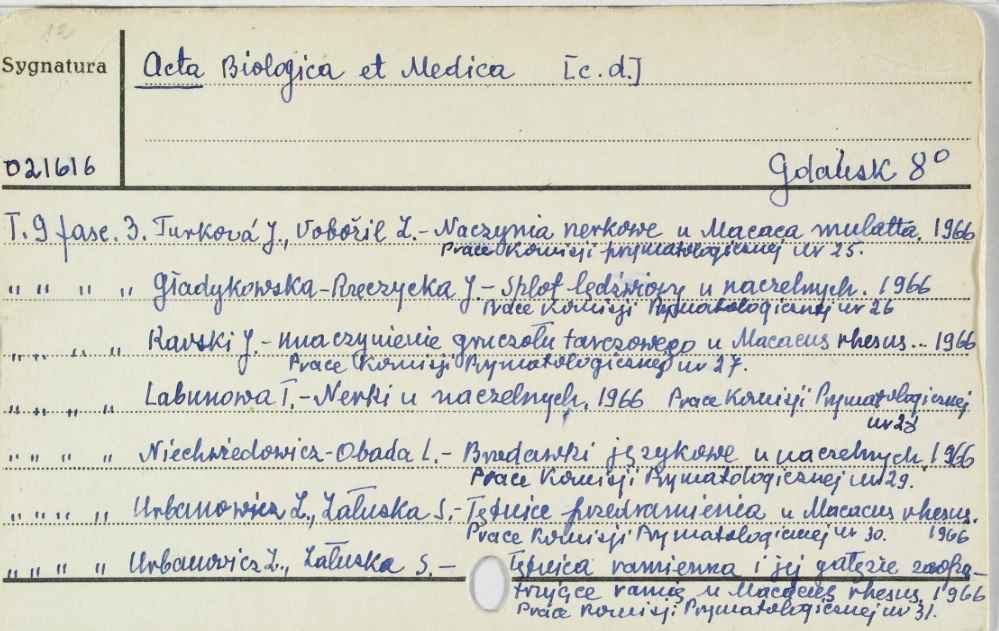 12
Sygnatura Acta Biologica et Medica [c.d.]
021616 Gdańsk 8°
T.9 fasc. 3. Turková J., Vobořil Z.- Naczynia nerkowe u Macaca mulatta. 1966
Prace Komisji prymatologicznej nr 25.
" " " " Gładykowska-Rzeczycka J - Splot lędźwiowy u naczelnych. 1966
Prace Komisji Prymatologicznej nr 26
" " " " Kavski J.- unaczynienie gruczołu tarczowego u Macacus rhesus... 1966
Prace Komisji Prymatologicznej nr 27.
" " " " Labunowa T.- Nerki u naczelnych. 1966 Prace Komisji Prymatologicznej
nr 28
" " " " Niechwiedowicz-Obada L.- Brodawki językowe u naczelnych. 1966
Prace Komisji Prymatologicznej nr 29.
" " " " Urbanowicz Z., Załuska S.- Tętnice przedramienia u Macacus rhesus.
Prace Komisji Prymatologicznej nr 30. 1966
" " " " Urbanowicz Z., Załuska S. - Tętnica ramienna i jej gałęzie zaopa-
trujące ramię u Macacus rhesus. 1966
Prace Komisji Prymatologicznej nr 31.